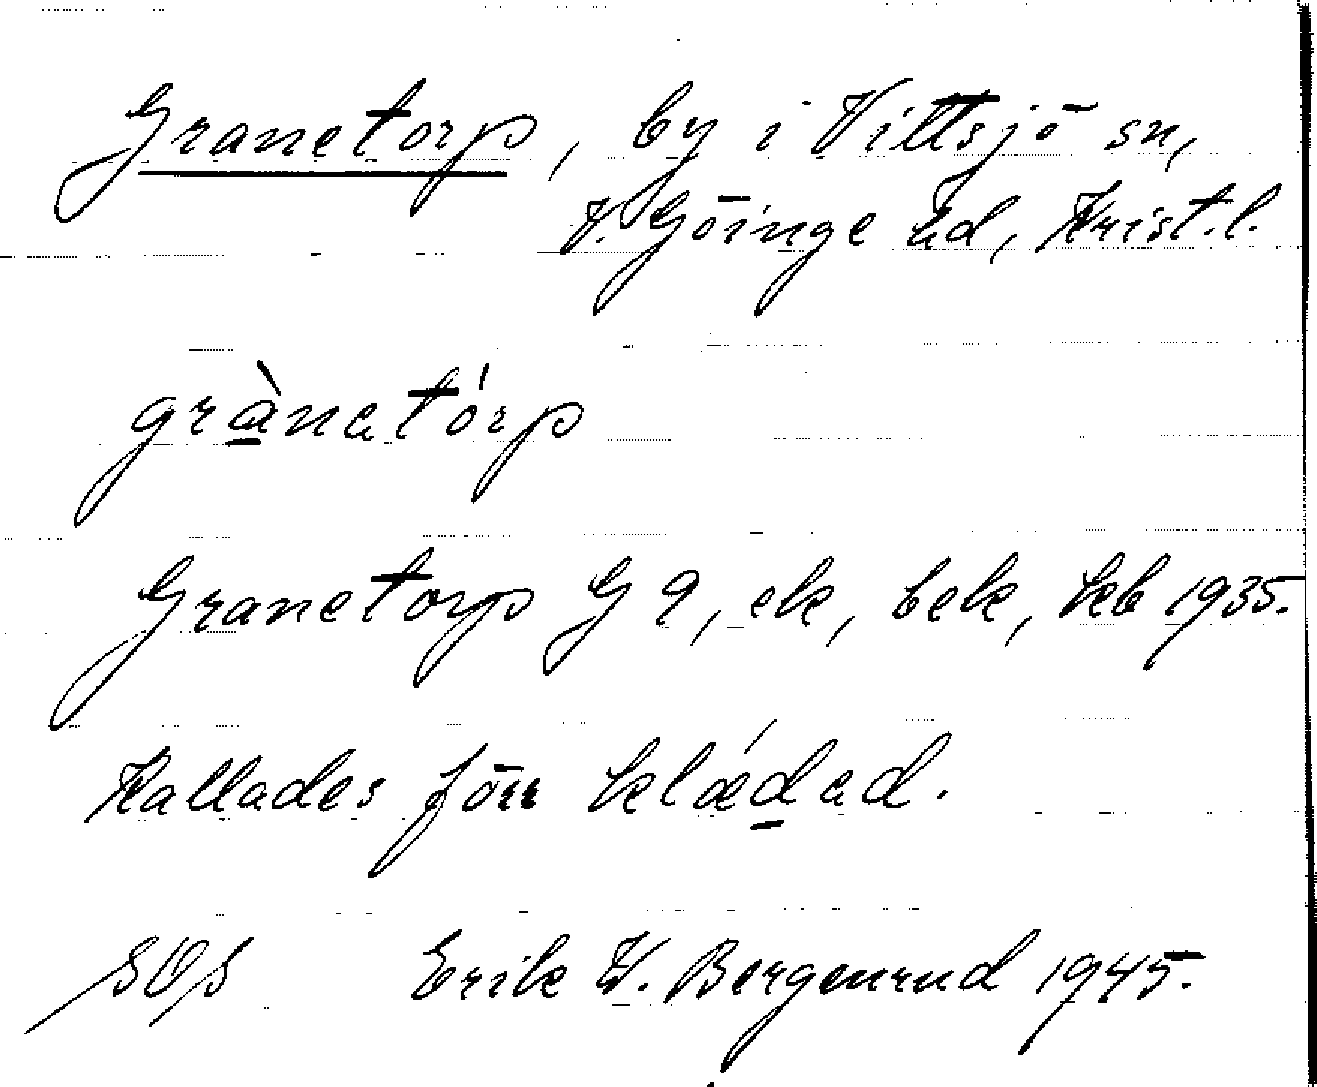 Granetorp, by i Vittsjö sn,
V. Göinge hd, Krist. l.
grànatórp
Granetorp G 9, ek, bek, kb 1935.
Kallades förr klǽdad.
SOS Erik W. Bergenrud 1945.